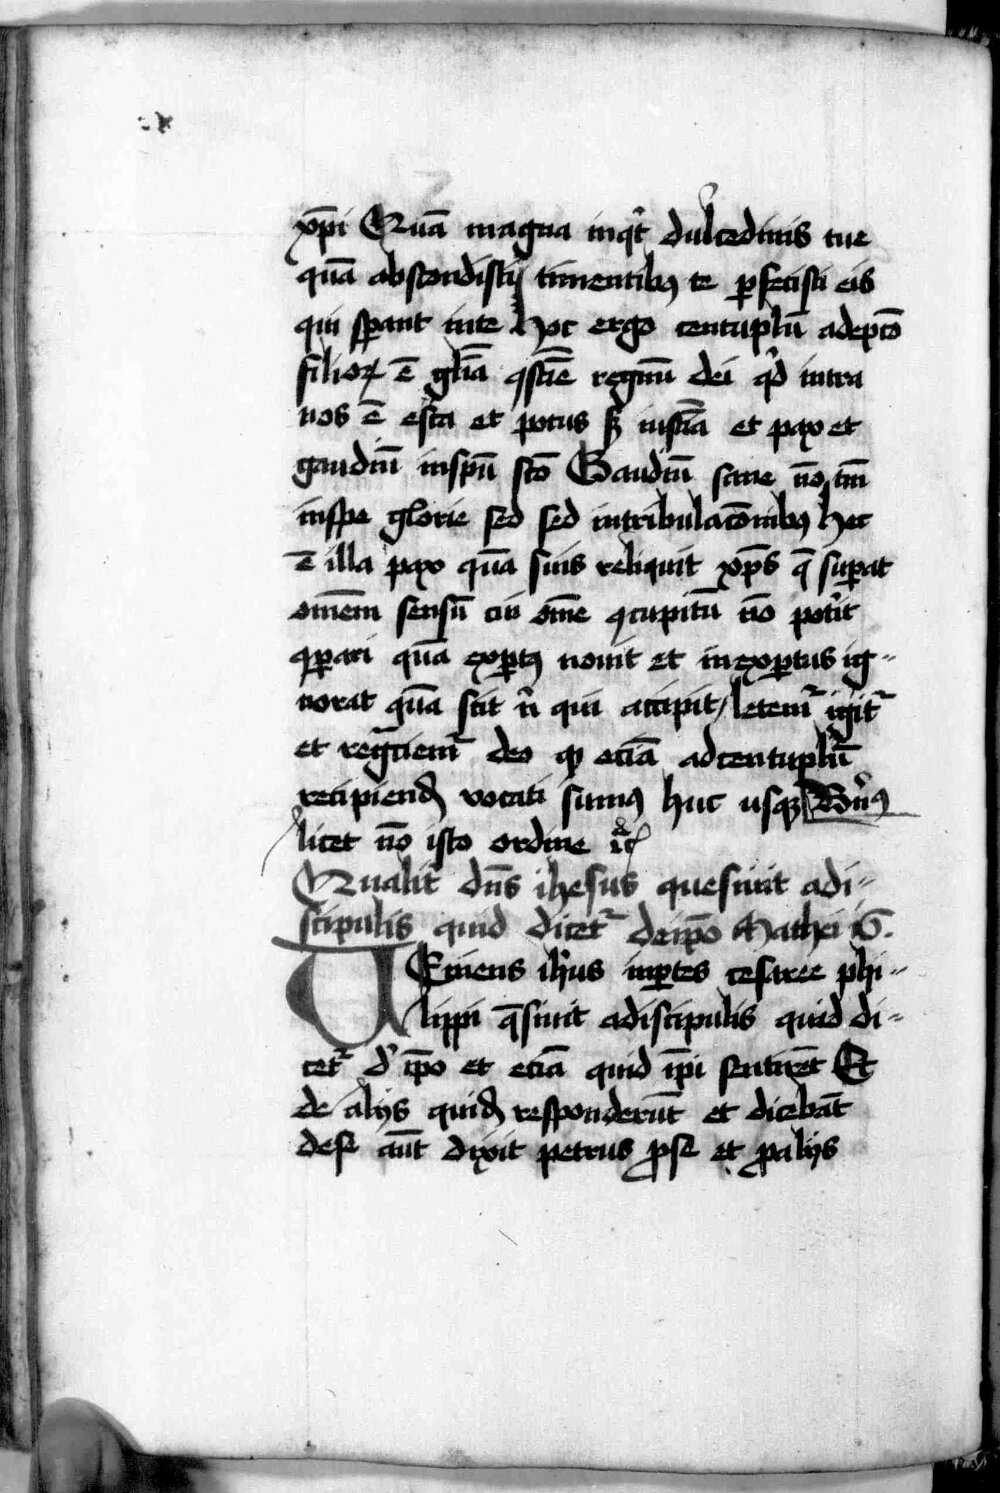 xp̄i Quā magna inqͥt dulcedinis tue
quā abscondisti timentibꝫ te ꝑfecisti eis
qui sꝑant inte Hoc ergo centuplū adepcō
filioꝝ ē gl̄ia ꝯsciē regnū dei qd̓ intra
nos ē esca et potus sꝫ iusticia et pax et
gaudiū inspū scō Gaudiū sane nō tm̄
inspe glorie sed sed intribulacōnibꝫ Hec
ē illa pax quā suis reliquit xp̄s q̄ suꝑat
om̄em sensū cui om̄e ꝯcupitū nō pot̓it
ꝯꝑari quā exꝑtꝰ nouit et inexꝑtus ig-
norat quā scit n̓ qui accipit / letem̓ igit̓
et regr̄ciem̓ deo qꝫ eciā adcentuplū
recipiend̄ vocati sumꝰ huc usqꝫ Bn̓ꝰ
licet nō isto ordine ⁊c̄
Qualit̓ dn̄s ihesus quesiuit adi-
scipulis quid dicet̓ deip̄o Mathei 16.
UEniens ih̓us inꝑtes cesaree phi-
lippi q̄siuit adiscipulis quid di-
cet̓ d̓ ip̄o et eciā quid ip̄i sentirēt Et
de alijs quid̄ responderūt et dicebāt
dese aūt dixit petrus ꝓse et ꝓalijs